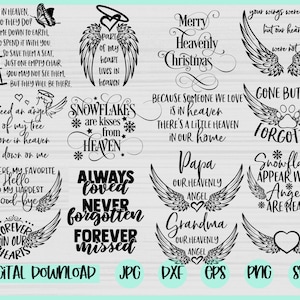 IN HEAVEN
THEY DO?
ME DOWN TO EARTH,
TO SPEND IT WITH YOU
SO SAVE THEM A SEAT,
JUST ONE EMPTY CHAIR
YOU MAY NOT SEE THEM,
BUT THEY WILL BE THERE.
A
PART
OF MY
HEART
LIVES IN
HEAVEN
Merry
Heavenly
Christmas
your wings were
but our hear
were no
need an angel
of my tree
one in heaven
down on me
SNOWFLAKES
are kisses
from
HEAVEN
BECAUSE SOMEONE WE LOVE
IS in heaven
THERE'S A LITTLE HEAVEN
IN OUR home
GONE BUT
FORGOT
ERE MY FAVORITE
Hello
MY HARDEST
Good-bye
ALWAYS
loved
NEVER
forgotten
FOREVER
missed
Papa
OUR HEAVENLY
ANGEL
Snowfl
APPEAR W
Ange
ARE NEA
FOREVER
IN OUR
HEARTS
Grandma
OUR HEAVENLY
ANGEL
GITAL DOWNLOAD JPG DXF EPS PNG S